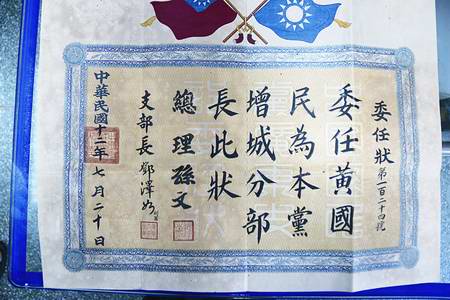 委任狀 第一百二十四號
委任黃國
民為本黨
增城分部
長此狀
總理孫文
支部長鄧澤如
中華民國十二年七月二十日